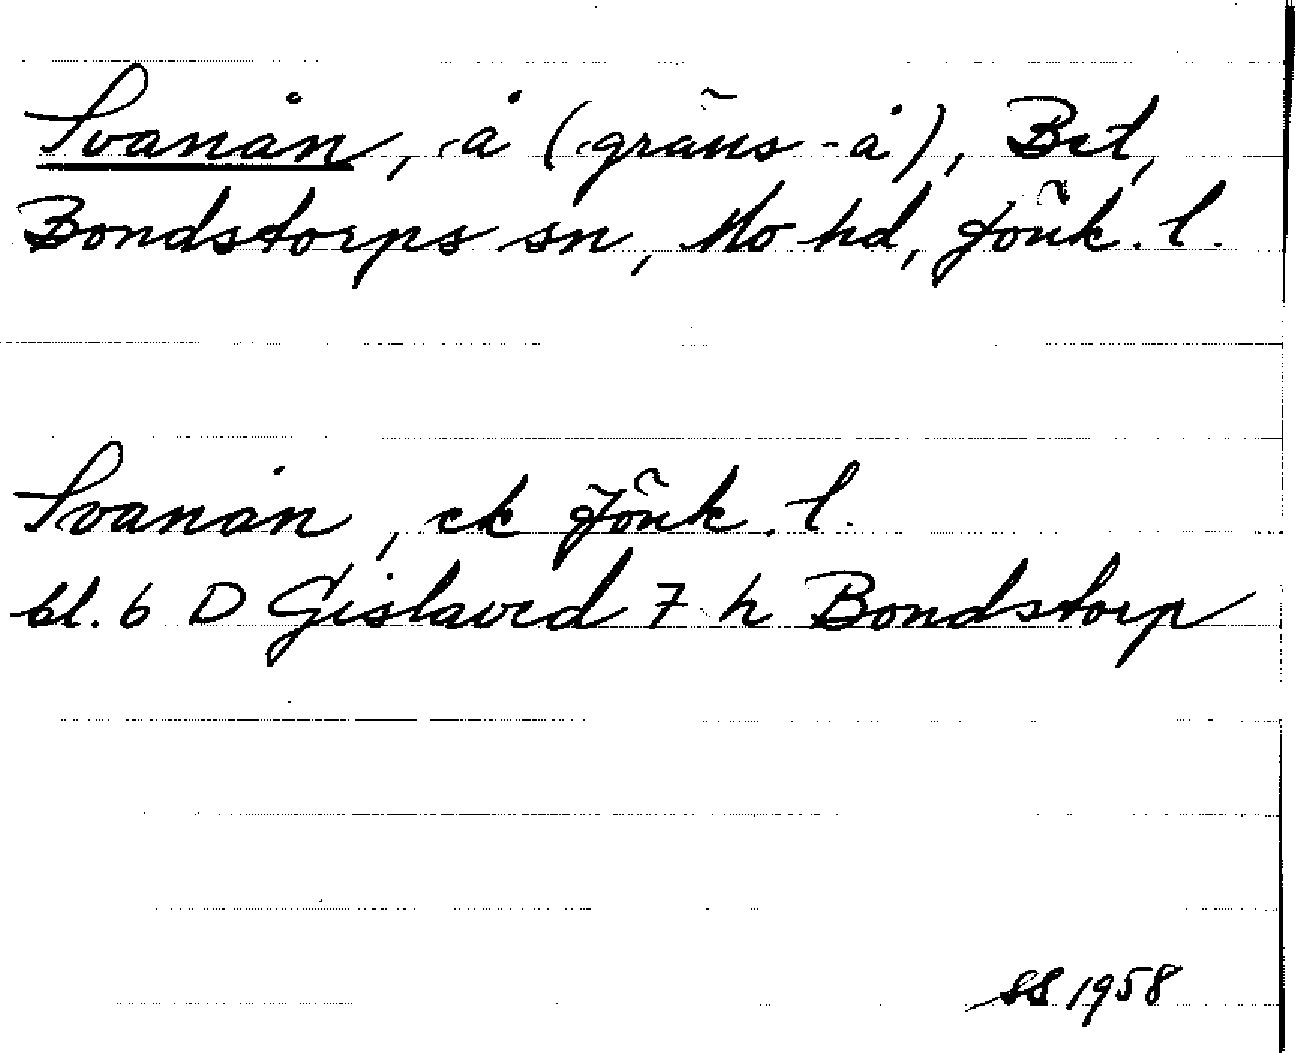 Svanån, å (gräns-å), Bet,
Bondstorps sn, Mo hd, Jönk. l.
Svanån, ek Jönk. l.
bl. 6 D Gislaved 7 h Bondstorp
SS 1958